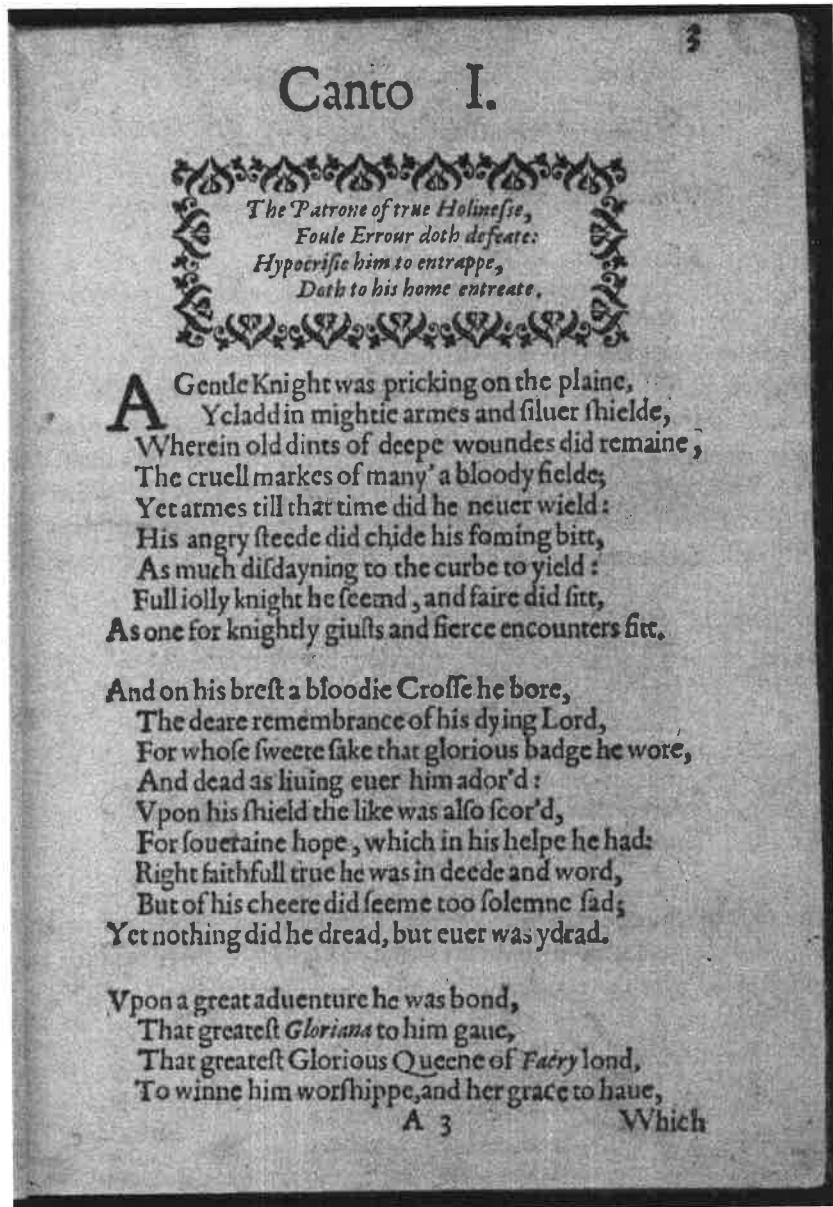 3
Canto I.
The Patrone of true Holineſſe,
Foule Errour doth defeate:
Hypocriſie him to entrappe,
Doth to his home entreate.
A Gentle Knight was pricking on the plaine,
Ycladd in mightie armes and ſiluer ſhielde,
Wherein old dints of deepe woundes did remaine,
The cruell markes of many' a bloody fielde;
Yet armes till that time did he neuer wield:
His angry ſteede did chide his foming bitt,
As much diſdayning to the curbe to yield:
Full iolly knight he ſeemd, and faire did ſitt,
As one for knightly giuſts and fierce encounters fitt.
And on his breſt a bloodie Croſſe he bore,
The deare remembrance of his dying Lord,
For whoſe ſweete ſake that glorious badge he wore,
And dead as liuing euer him ador'd:
Vpon his ſhield the like was alſo ſcor'd,
For ſoueraine hope, which in his helpe he had:
Right faithfull true he was in deede and word,
But of his cheere did ſeeme too ſolemne ſad;
Yet nothing did he dread, but euer was ydrad.
Vpon a great aduenture he was bond,
That greateſt Gloriana to him gaue,
That greateſt Glorious Queene of Faery lond,
To winne him worſhippe, and her grace to haue,
A 3 Which